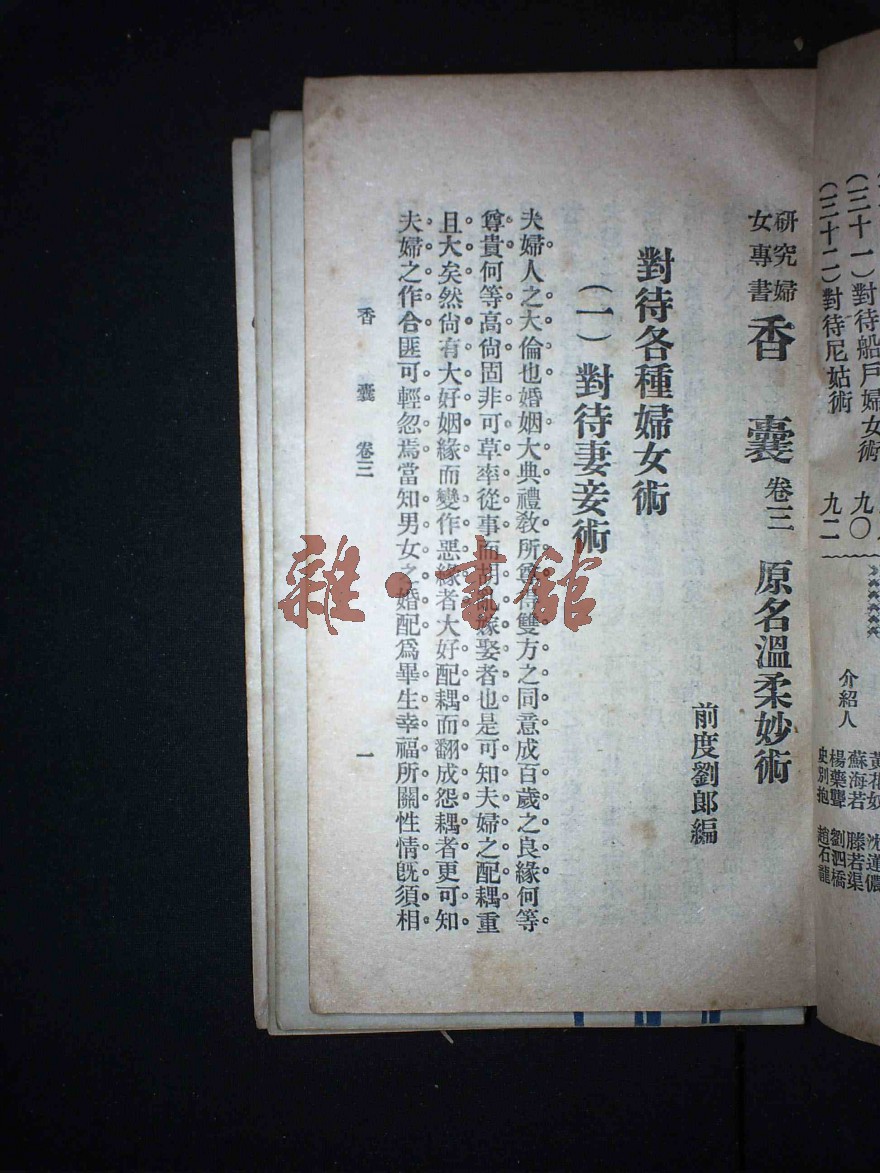 (三十一)對待船戶婦女術 九〇
(三十二)對待尼姑術 九二
介紹人
蘇海若 滕若渠
楊藥聾 劉泗橋
史別抱 趙石龍
研究婦
女專書
香囊 卷三 原名溫柔妙術
前度劉郎編
對待各種婦女術
(一)對待妻妾術
夫婦人之大倫也婚姻大典禮敎所 得雙方之同意成百歲之良緣何等
尊貴何等高尙固非可草率從事而胡亂嫁娶者也是可知夫婦之配耦重
且大矣然尙有大好姻緣而變作惡緣者大好配耦而翻成怨耦者更可知
夫婦之作合匪可輕忽焉當知男女之婚配爲畢生幸福所關性情旣須相
香囊 卷三
一
雜·書館